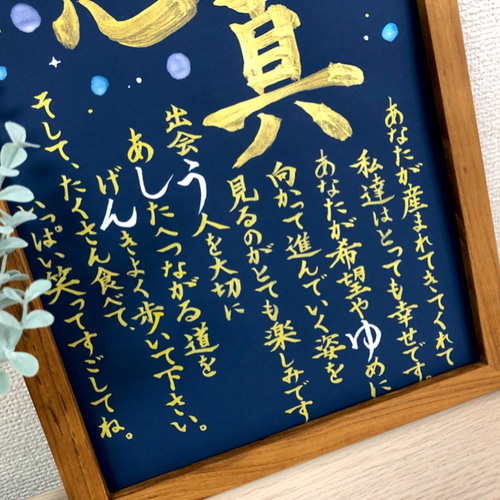 真
あなたが産まれてきてくれて
私達はとっても幸せです。
あなたが希望やゆめに
向かって進んでいく姿を
見るのがとても楽しみです
出会う人を大切に
あしたへつながる道を
げんきよく歩いて下さい。
そして、たくさん食べて、
いっぱい笑ってすごしてね。